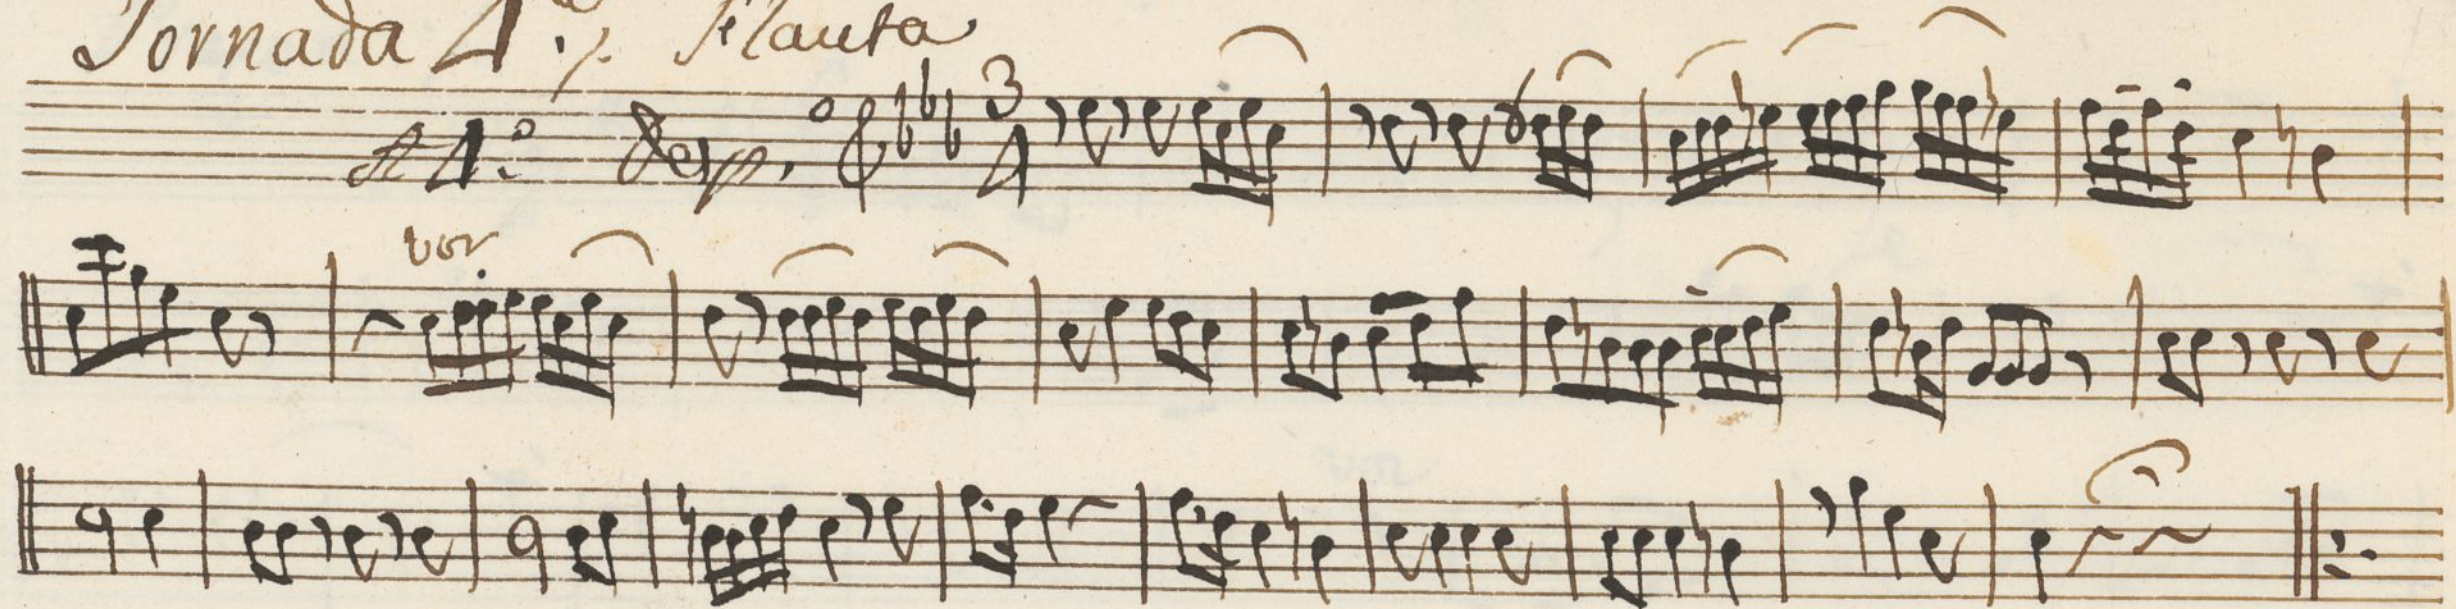 Jornada 1ª Flauta
A 4º Desp.º
3
4
voz